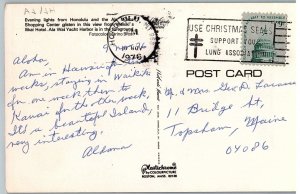 Evening lights from Honolulu and the Ala
Shopping Center glisten in this view from
Ilikai Hotel. Ala Wai Yacht Harbor is in the foreground.
Aloha,
Am in Hawaii for
weeks, staying in Waikiki
for one week then to
Kauai for the other week.
It's a beautiful Island,
very interesting.
Aldona
PM
1976
USE CHRISTMAS SEALS
SUPPORT YOUR
LUNG ASSOCIATION
POST CARD
Mr. & Mrs. Geo. D.
11 Bridge St,
Topsham, Maine
04086